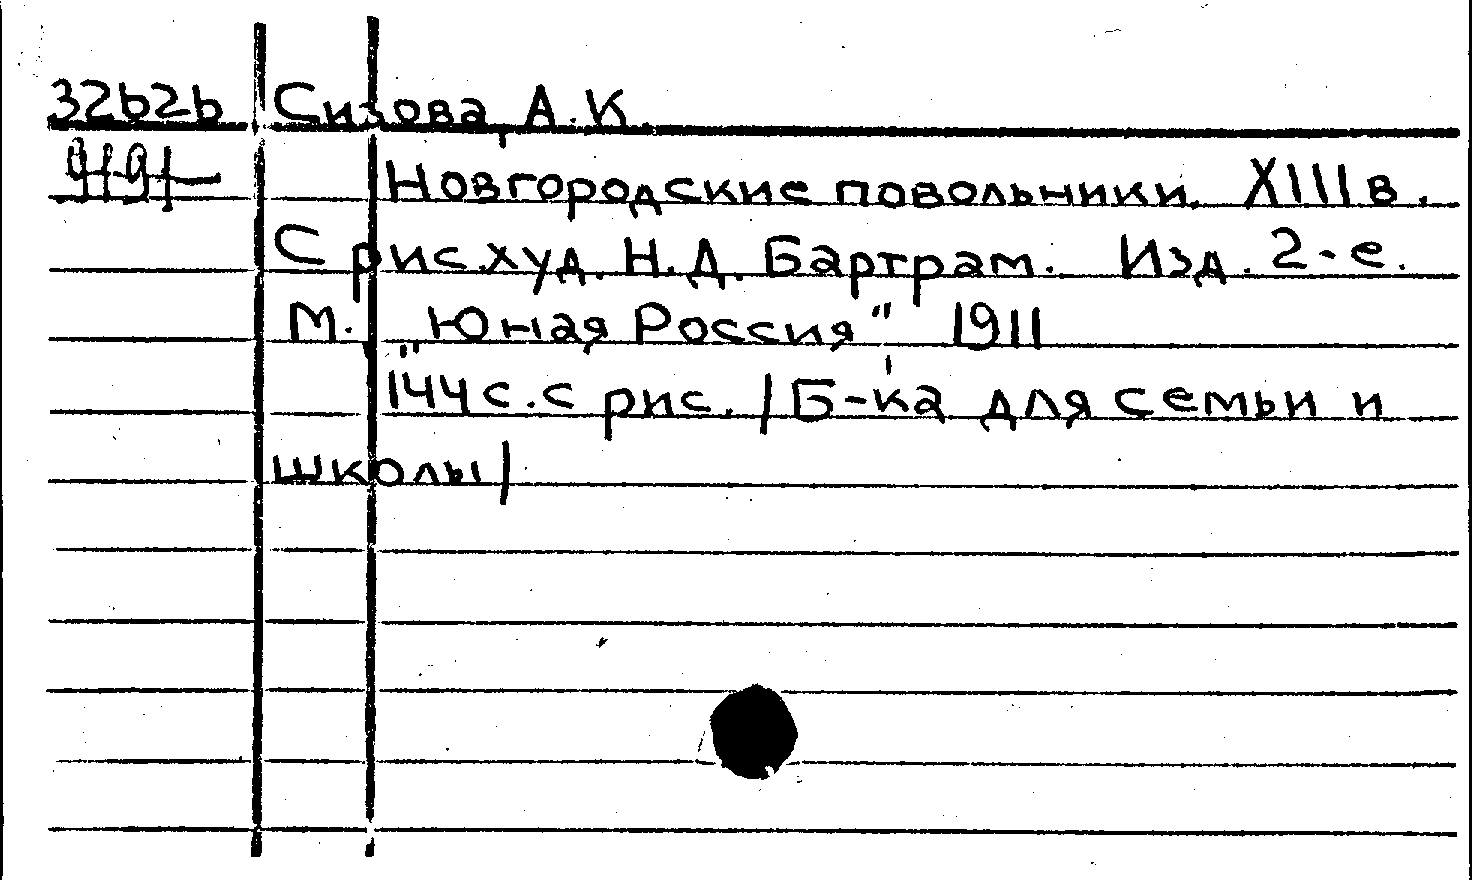 32626 Сизова, А.К.
9191
Новгородские повольники. XIII в.
С рис. худ. Н.Д. Бартрам. Изд. 2-е.
М. "Юная Россия" 1911
144 с. с рис. /Б-ка для семьи и
школы/